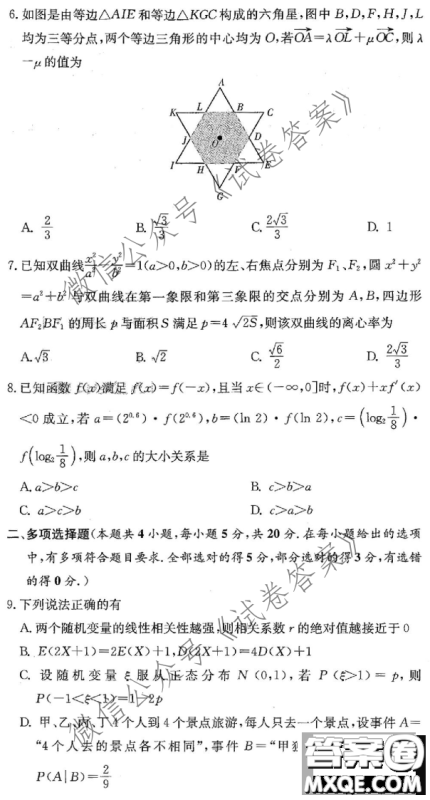 6. 如图是由等边△AIE和等边△KGC构成的六角星,图中B,D,F,H,J,L
均为三等分点,两个等边三角形的中心均为O,若OA=λOL+μOC,则λ
-μ的值为
A
K L B C
J O D
I H F E
G
A. 2/3 B. √3/3 C. 2√3/3 D. 1
7. 已知双曲线x²/a²-y²/b²=1(a>0,b>0)的左、右焦点分别为F₁、F₂,圆x²+y²
=a²+b²与双曲线在第一象限和第三象限的交点分别为A,B,四边形
AF₂BF₁的周长p与面积S满足p=4√2S,则该双曲线的离心率为
A. √3 B. √2 C. √6/2 D. 2√3/3
8. 已知函数f(x)满足f(x)=f(-x),且当x∈(-∞,0]时,f(x)+xf′(x)
<0成立,若a=(2^0.6)·f(2^0.6),b=(ln 2)·f(ln 2),c=(log₂1/8)·
f(log₂1/8),则a,b,c的大小关系是
A. a>b>c B. c>b>a
C. a>c>b D. c>a>b
二、多项选择题(本题共4小题,每小题5分,共20分.在每小题给出的选项
中,有多项符合题目要求.全部选对的得5分,部分选对的得3分,有选错
的得0分.)
9. 下列说法正确的有
A. 两个随机变量的线性相关性越强,则相关系数r的绝对值越接近于0
B. E(2X+1)=2E(X)+1,D(2X+1)=4D(X)+1
C. 设随机变量ξ服从正态分布N(0,1),若P(ξ>1)=p,则
P(-1<ξ<1)=1-2p
D. 甲、乙、丙、丁4个人到4个景点旅游,每人只去一个景点,设事件A=
“4个人去的景点各不相同”,事件B=“甲独
P(A|B)=2/9
微信公众号《试卷答案》
微信公众号《试卷答案》
答案圈
MXQE.COM